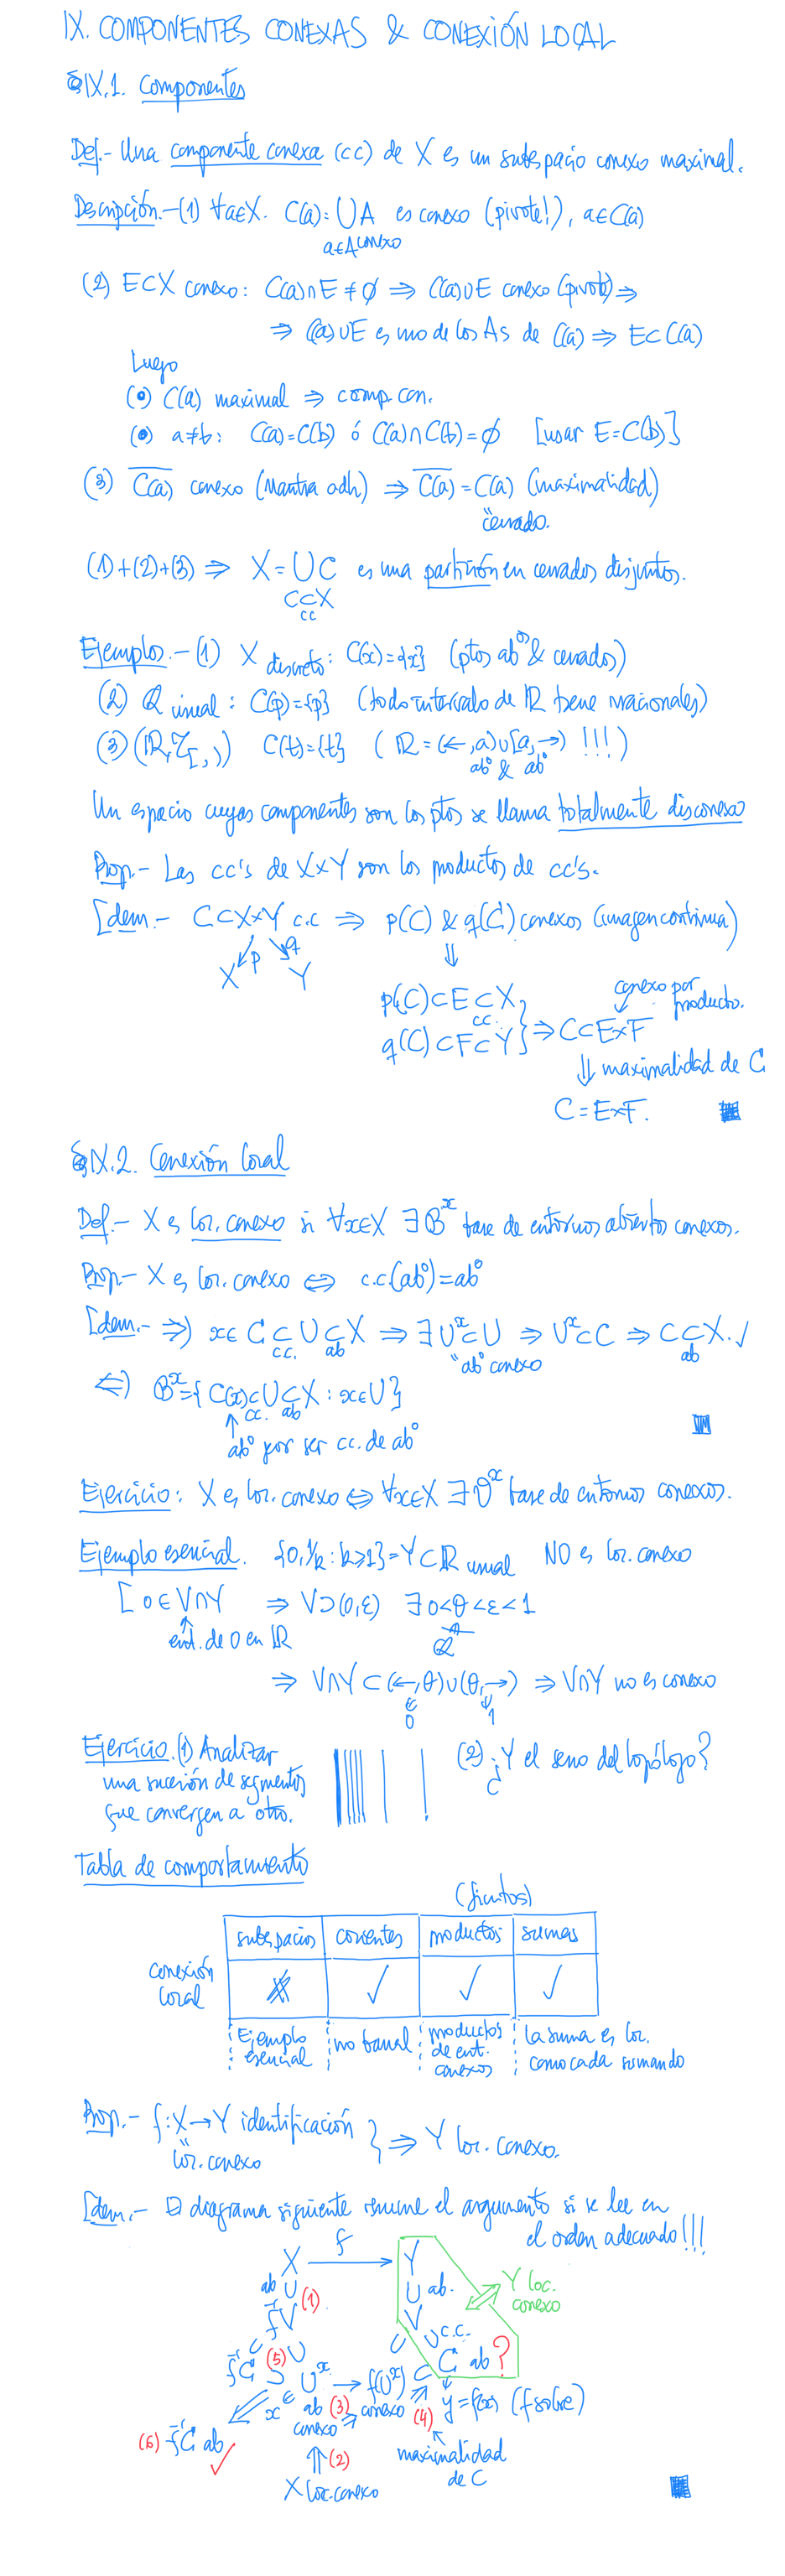 IX. COMPONENTES CONEXAS & CONEXIÓN LOCAL
§IX.1. Componentes
Def.- Una componente conexa (cc) de X es un subespacio conexo maximal.
Descripción.- (1) ∀a∈X. C(a) = ⋃A es conexo (pivote!), a∈C(a)
a∈A conexo
(2) E⊂X conexo: C(a)∩E≠∅ ⇒ C(a)∪E conexo (pivote) ⇒
⇒ C(a)∪E es uno de los As de C(a) ⇒ E⊂C(a)
Luego
(•) C(a) maximal ⇒ comp. con.
(•) a≠b: C(a)=C(b) ó C(a)∩C(b)=∅ [usar E=C(b)]
(3) \overline{C(a)} conexo (Mantra adh) ⇒ \overline{C(a)} = C(a) (maximalidad)
" cerrado.
(1)+(2)+(3) ⇒ X = ⋃C es una partición en cerrados disjuntos.
C⊂X
cc
Ejemplos.- (1) X discreto: C(x)={x} (ptos abº & cerrados)
(2) Q usual: C(p)={p} (todo intervalo de R tiene irracionales)
(3) (R, τ[,)) C(t)={t} (R = (←,a)∪[a,→) !!!)
abº & abº
Un espacio cuyas componentes son los ptos se llama totalmente disconexo
Prop.- Las cc's de X×Y son los productos de cc's.
[dem.- C⊂X×Y c.c ⇒ p(C) & q(C) conexos (imagen continua)
p q
X Y ⇓
p(C)⊂E⊂X
cc
q(C)⊂F⊂Y } ⇒ C⊂E×F
conexo por producto.
⇓ maximalidad de C
C = E×F.
§IX.2. Conexión local
Def.- X es loc. conexo si ∀x∈X ∃B^x base de entornos abiertos conexos.
Prop.- X es loc. conexo ⇔ c.c.(abº)=abº
[dem.- ⇒) x∈C⊂U⊂X ⇒ ∃U^x⊂U ⇒ U^x⊂C ⇒ C⊂X. ✓
cc. ab " abº conexo ab
⇐) B^x={C(x)⊂U⊂X : x∈U}
↑ cc. ab
abº por ser cc. de abº
Ejercicio: X es loc. conexo ⇔ ∀x∈X ∃V^x base de entornos conexos.
Ejemplo esencial. {0, 1/k : k≥1}=Y⊂R usual NO es loc. conexo
[0∈V∩Y ⇒ V⊃(0,ε) ∃0<θ<ε<1
↑
ent. de 0 en R Q
⇒ V∩Y⊂(←,θ)∪(θ,→) ⇒ V∩Y no es conexo
0 1
Ejercicio. (1) Analizar
una sucesión de segmentos
que convergen a otro.
(2) ¿Y el seno del topólogo?
Tabla de comportamiento
(finitos)
subespacios cocientes productos sumas
conexión local ✗ ✓ ✓ ✓
Ejemplo esencial no trivial productos de ent. conexos la suma es loc. como cada sumando
Prop.- f: X→Y identificación
" loc. conexo } ⇒ Y loc. conexo.
[dem.- El diagrama siguiente resume el argumento si se lee en
el orden adecuado!!!
X f Y
ab ∪ (1) ∪ ab. Y loc. conexo
f⁻¹V V
∪ c.c.
f⁻¹C (5) U^x → f(U^x) ⊂ C ab ?
x ∈ ab (3) conexo (4) y=f(x) (f sobre)
conexo
(6) f⁻¹C ab ✓
⇑ (2)
X loc. conexo
maximalidad
de C